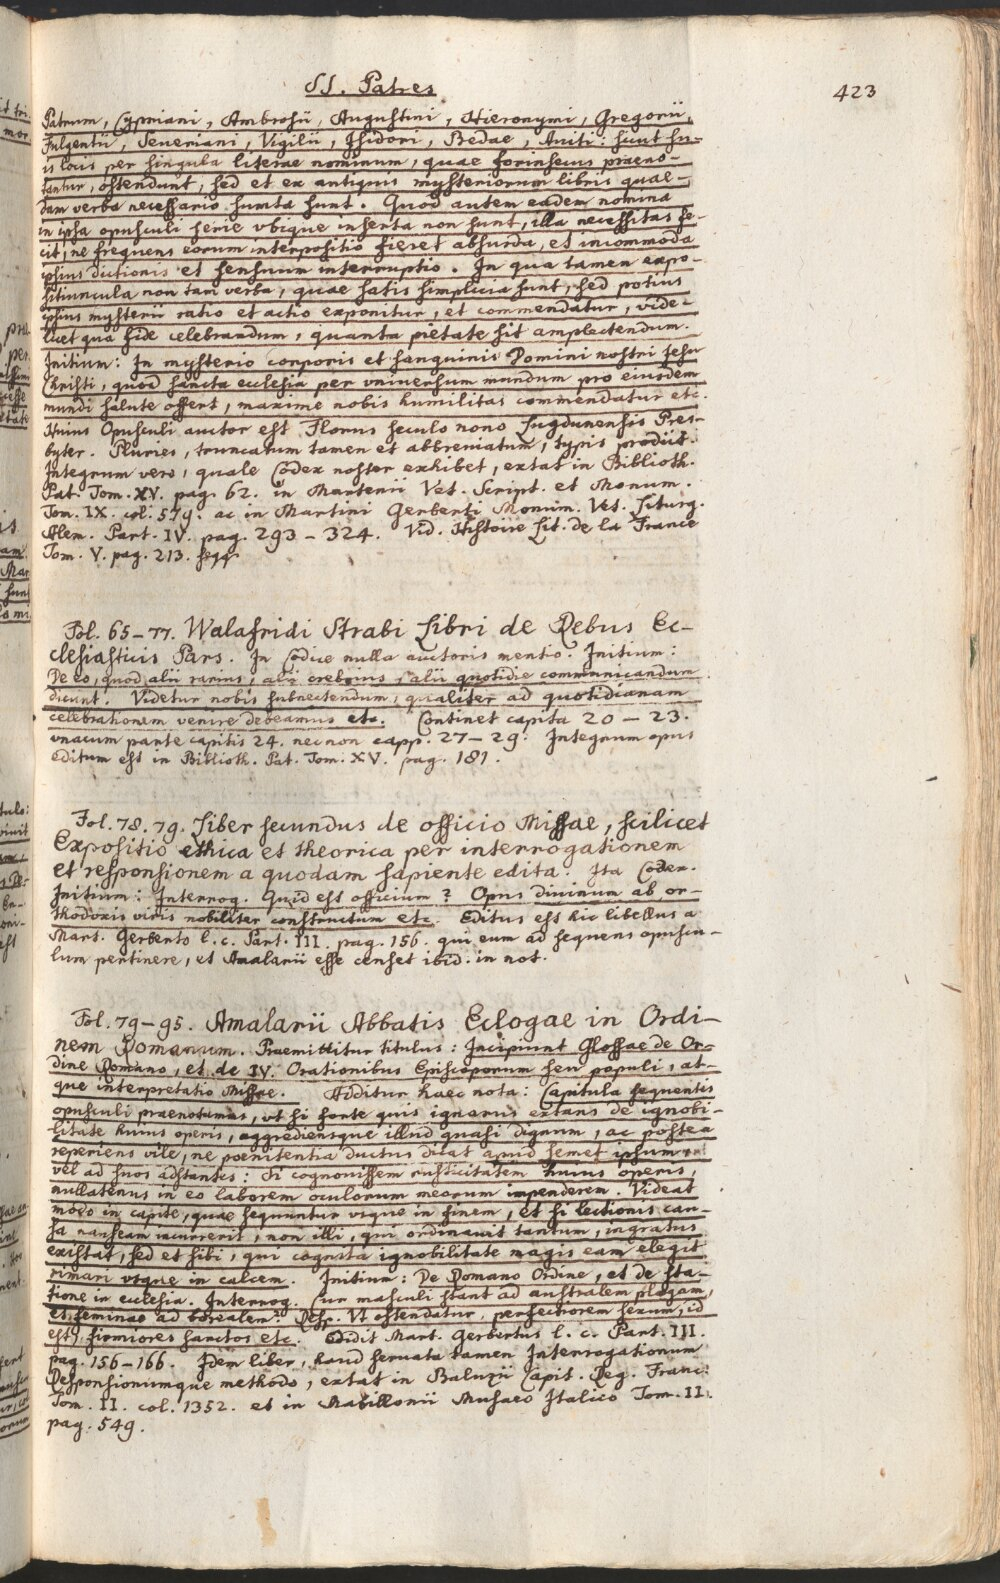 SS. Patres
423
Patrum, Cypriani, Ambrosii, Augustini, Hieronymi, Gregorii,
Fulgentii, Severiani, Vigilii, Isidori, Bedae, Aviti: sicut su-
is locis per singula literae nominum, quae forinsecus praeno-
tantur, ostendunt, sed et ex antiquis mysteriorum libris quae-
dam verba necessario sumta sunt. Quod autem eadem nomina
in ipsa opusculi serie vbique inserta non sunt, illa necessitas fe-
cit, ne frequens eorum interpositio fieret absurda, et incommoda
ipsius dictionis et sensuum interruptio. In qua tamen expo-
sitiuncula non tam verba, quae satis simplicia sunt, sed potius
ipsius mysterii ratio et actio exponitur, et commendatur, vide-
licet qua fide celebrandum, quanta pietate sit amplectendum.
Initium: In mysterio corporis et sanguinis Domini nostri Jesu
Christi, quod sancta ecclesia per vniversum mundum pro eiusdem
mundi salute offert, maxime nobis humilitas commendatur etc.
Huius Opusculi auctor est Florus seculo nono Lugdunensis Pres-
byter. Pluries, truncatum tamen et abbreviatum, typis prodiit.
Integrum vero, quale Codex noster exhibet, extat in Biblioth.
Pat. Tom. XV. pag. 62. in Martenii Vet. Script. et Monum.
Tom. IX. col. 579. ac in Martini Gerberti Monum. Vet. Liturg.
Alem. Part. IV. pag. 293 - 324. Vid. Histoire Lit. de la France
Tom. V. pag. 213. seqq.
Fol. 65-77. Walafridi Strabi Libri de Rebus Ec-
clesiasticis Pars. In Codice nulla auctoris mentio. Initium:
De eo, quod alii rarius, alii crebrius, alii quotidie communicandum
dicunt. Videtur nobis subnectendum, qualiter ad quotidianam
celebrationem venire debeamus etc. Continet capita 20 - 23.
vnacum parte capitis 24. nec non capp. 27-29. Integrum opus
editum est in Biblioth. Pat. Tom. XV. pag. 181.
Fol. 78. 79. Liber secundus de officio Missae, scilicet
Expositio ethica et theorica per interrogationem
et responsionem a quodam sapiente edita. Ita Codex.
Initium: Interrog. Quid est officium? Opus divinum ab or-
thodoxis viris nobiliter constructum etc. Editus est hic libellus a
Mart. Gerberto l. c. Part. III. pag. 156. qui eum ad sequens opuscu-
lum pertinere, et Amalarii esse censet ibid. in not.
Fol. 79-95. Amalarii Abbatis Eclogae in Ordi-
nem Romanum. Praemittitur titulus: Incipiunt Glossae de Or-
dine Romano, et de IV. Orationibus Episcoporum seu populi, at-
que interpretatio Missae. Additur haec nota: Capitula sequentis
opusculi praenotamus, vt si forte quis ignarus extans de ignobi-
litate huius operis, aggrediensque illud quasi dignum, ac postea
reperiens vile, ne poenitentia ductus dicat apud semet ipsum
vel ad suos adstantes: Si cognovissem rusticitatem huius operis,
nullatenus in eo laborem oculorum meorum impenderem. Videat
modo in capite, quae sequuntur vsque in finem, et si lectionis cau-
sa nauseam incurrerit, non illi, qui ordinavit tantum, ingratus
existat, sed et sibi, qui cognita ignobilitate magis eam elegit
rimari vsque in calcem. Initium: De Romano Ordine, et de sta-
tione in ecclesia. Interrog. Cur masculi stant ad australem plagam,
et feminae ad borealem? Resp. Vt ostendatur, perfectiorem sexum, id
est, firmiores sanctos etc. Edidit Mart. Gerbertus l. c. Part. III.
pag. 156-166. Idem liber, haud servata tamen Interrogationum
Responsionumque methodo, extat in Baluzii Capit. Reg. Franc.
Tom. II. col. 1352. et in Mabillonii Musaeo Italico Tom. II.
pag. 549.